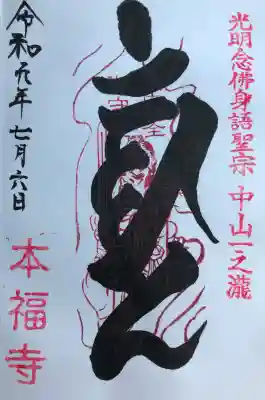 光明念佛身語聖宗 中山一之瀧
令和元年七月六日
本福寺